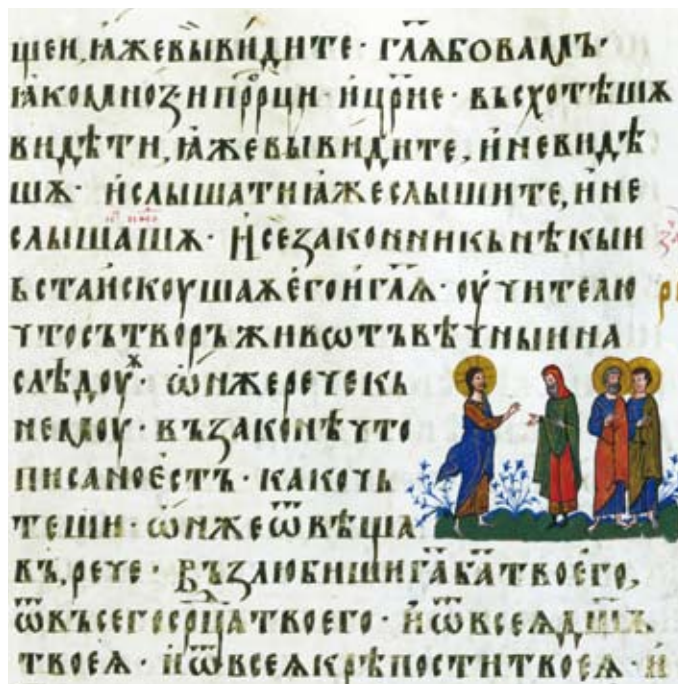 шеи, ꙗ҆жевывидите · гл҃ѧбовамъ ·
ꙗ҆комноꙁ҆ипрⷪ҇рци · ї҆цр҃ие · въсхотѣшѧ
видѣти, ꙗ҆жевывидите, и҆невидѣ
шѧ · и҆слышатиꙗ҆жеслышите, и҆не
слышашѧ · И҆сеꙁаконникънѣкыи
въстаи҆скоушаꙗжеего҆и҆гл҃ѧ · оу҆чителю
чтосътворъживѡтъвѣчныина
слѣдоуⷤ · ѡ҆нжеречекъ
немоу · въꙁаконѣчто
писаноестъ · какочь
теши · ѡ҆нжеѿвѣща
въ, рече · Въꙁлюбишига҃ба҃твоего,
ѿвъсегосрⷣцатвоего · и҆ѿвсеѧдш҃ѧ
твоеѧ · и҆ѿвсеѧкрѣпоститвоеѧ · и҆